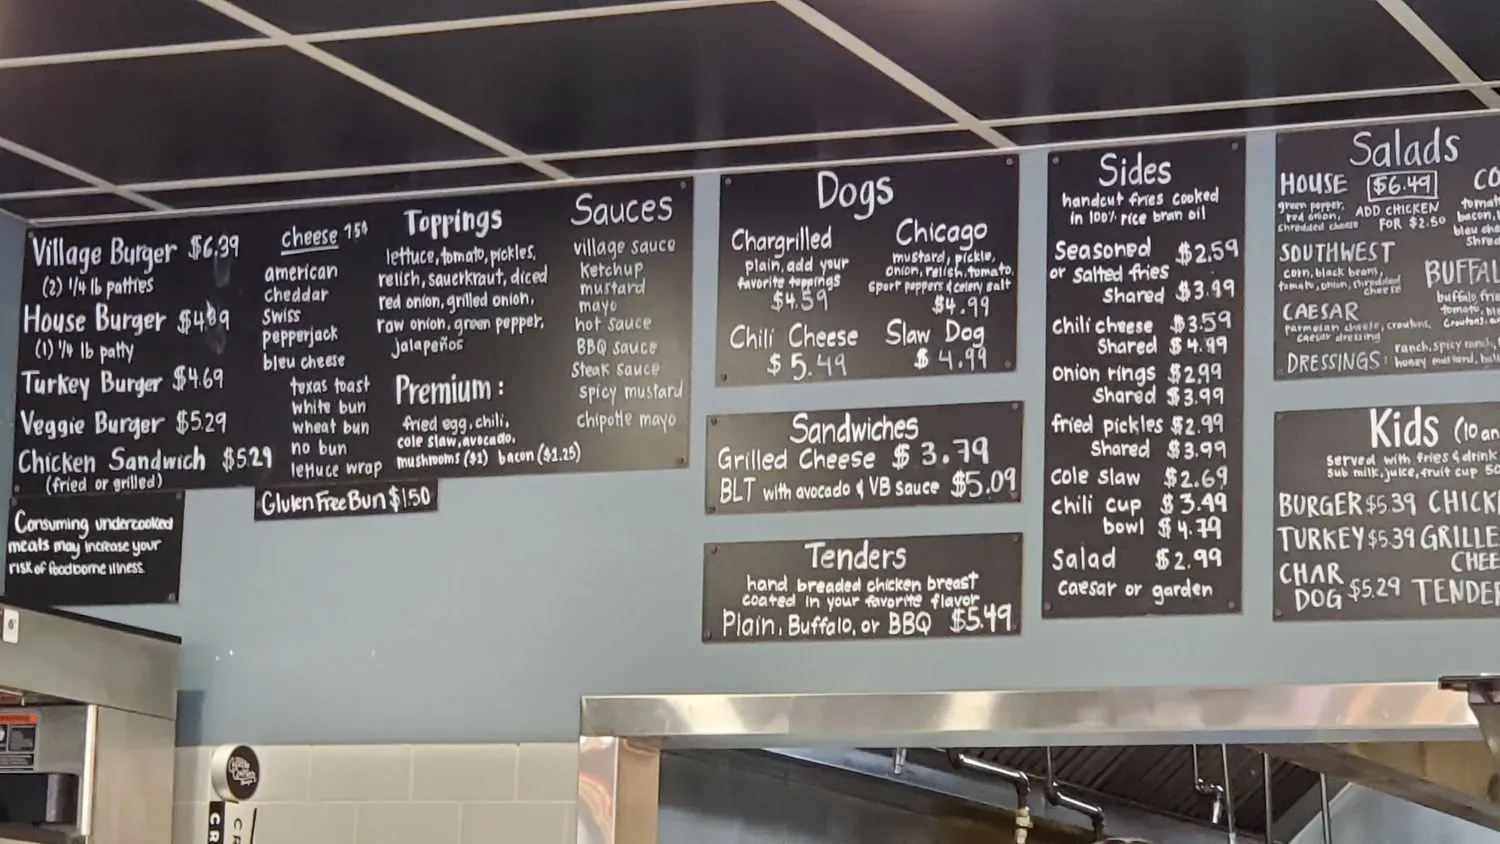 Village Burger $6.39
(2) 1/4 lb patties
House Burger
(1) 1/4 lb patty
Turkey Burger $4.69
Veggie Burger $5.29
Chicken Sandwich $5.29
(fried or grilled)
cheese 75¢
american
cheddar
swiss
pepperjack
bleu cheese
texas toast
white bun
wheat bun
no bun
lettuce wrap
Toppings
lettuce, tomato, pickles,
relish, sauerkraut, diced
red onion, grilled onion,
raw onion, green pepper,
jalapeños
Premium:
fried egg, chili,
cole slaw, avocado,
mushrooms ($1) bacon ($1.25)
Sauces
village sauce
ketchup
mustard
mayo
hot sauce
BBQ sauce
steak sauce
spicy mustard
chipotle mayo
Gluten Free Bun $1.50
Consuming undercooked
meats may increase your
risk of foodborne illness.
Dogs
Chargrilled
plain, add your
favorite toppings
$4.59
Chicago
mustard, pickle,
onion, relish, tomato,
sport peppers & celery salt
$4.99
Chili Cheese
$5.49
Slaw Dog
$4.99
Sandwiches
Grilled Cheese $3.79
BLT with avocado & VB sauce $5.09
Tenders
hand breaded chicken breast
coated in your favorite flavor
Plain, Buffalo, or BBQ $5.49
Sides
handcut fries cooked
in 100% rice bran oil
Seasoned $2.59
or salted fries
Shared $3.99
chili cheese $3.59
Shared $4.99
onion rings $2.99
Shared $3.99
fried pickles $2.99
Shared $3.99
cole slaw $2.69
chili cup $3.49
bowl $4.79
Salad $2.99
caesar or garden
Salads
HOUSE $6.49
green pepper,
red onion,
shredded cheese
ADD CHICKEN
FOR $2.50
SOUTHWEST
corn, black beans,
tomato, onion, shredded
cheese
CAESAR
parmesan cheese, croutons,
caesar dressing
DRESSINGS: ranch, spicy ranch,
honey mustard,
CO
tomat
bacon,
bleu che
shred
BUFFAL
buffalo, frie
tomato, ble
croutons,
Kids (10 an
served with fries & drink
sub milk, juice, fruit cup 50
BURGER $5.39 CHICK
TURKEY $5.39 GRILLE
CHEE
CHAR
DOG $5.29 TENDER